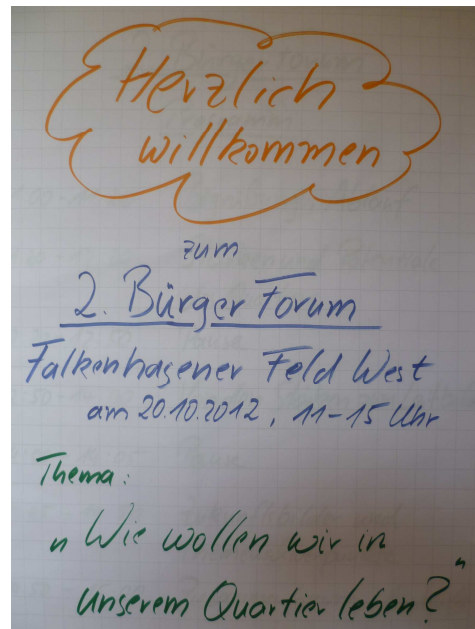 Herzlich
willkommen
zum
2. Bürger Forum
Falkenhagener Feld West
am 20.10.2012, 11-15 Uhr
Thema:
„Wie wollen wir in
unserem Quartier leben?"